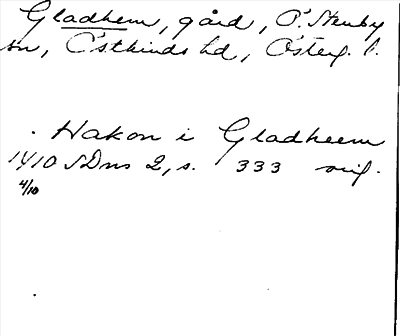 Gladhem, gård, Ö. Stenby
sn, Östkinds hd, Österg. l.
Hakon i Gladheem
1410 SDns 2, s. 333 orig.
4/10